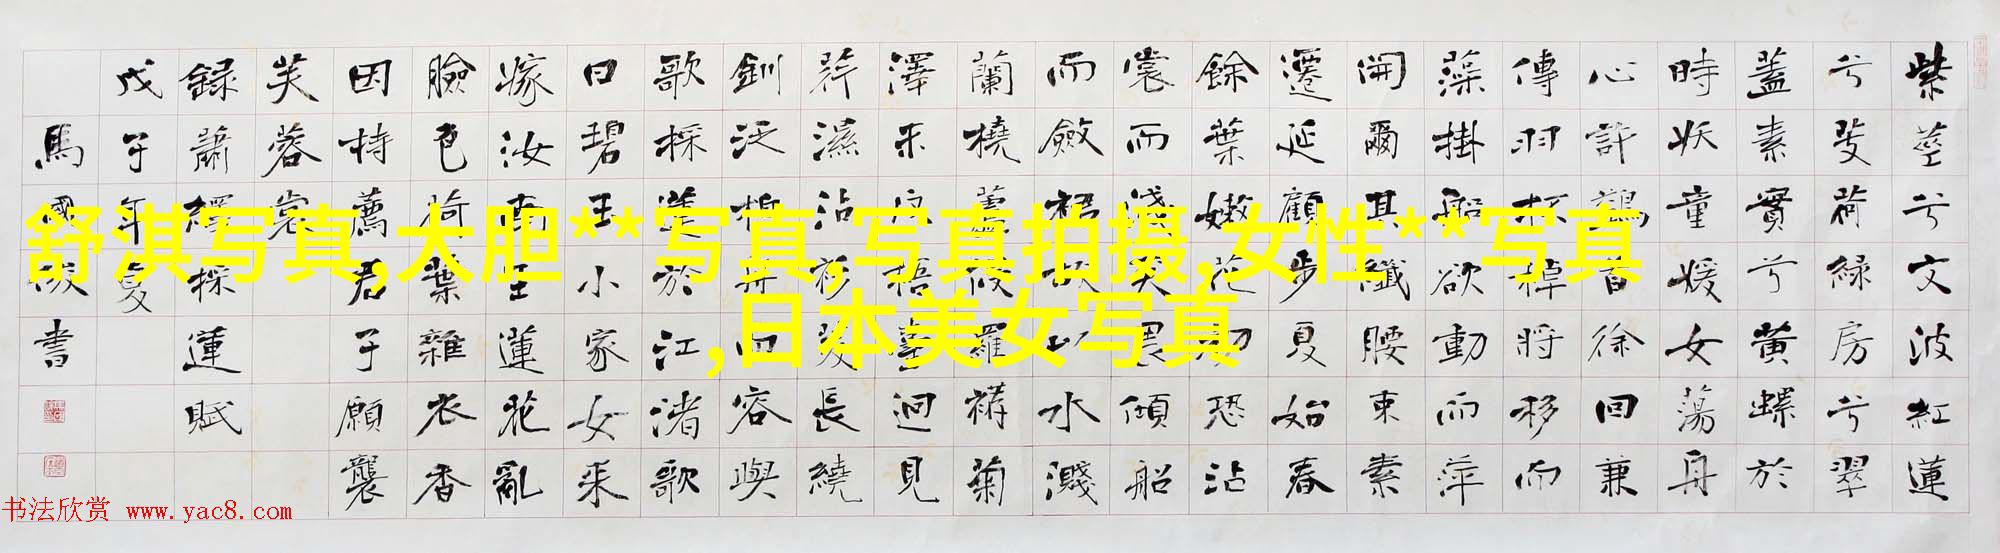 紫莖兮文波紅蓮
兮芰荷綠房兮翠
蓋素實兮黃螺於
時妖童媛女蕩舟
心許鷁首徐回兼
傳羽杯棹將移而
藻掛船欲動而萍
開爾其纖腰束素
遷延顧步夏始春
餘葉嫩花初恐沾
裳而淺笑畏傾船
而斂裾故以水濺
蘭橈蘆侵羅褠菊
澤未反梧臺迥見
荇濕沾衫菱長繞
釧泛柏舟而容與
歌採蓮於江渚歌
曰碧玉小家女来
嫁汝南王蓮花亂
臉色荷葉雜衣香
因持薦君子願襲
芙蓉裳
錄蕭繹採蓮賦
戊子年夏
馬國俊書
舒淇写真,大胆**写真,写真拍摄,女性**写真
,日本美女写真
书法欣赏 www.yac8.com